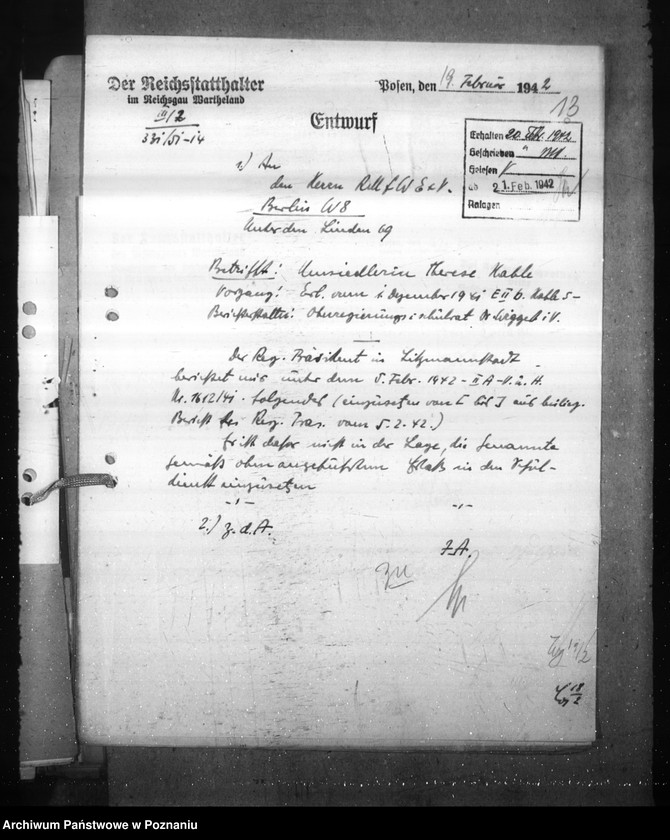 Der Reichsstatthalter
im Reichsgau Wartheland
III/2
331/51-14
Posen, den 19. Februar 1942
13
Entwurf
Erhalten 20. Feb. 1942
Geschrieben
Gelesen
ab 21. Feb. 1942
Anlagen
1) An
den Herrn RMfWEuV.
Berlin W8
Unter den Linden 69
Betrifft: Umsiedlerin Therese Kahle
Vorgang: Erl. vom 1 Dezember 1941 E II b. Kahle 5-
Berichterstatter: Oberregierungs- u. schulrat Dr i.V.
Der Reg. Präsident in Litzmannstadt
berichtet mir unter dem 5. Febr. 1942 - II A-V.2.H.
Nr. 1612/41 - folgendes (einzusetzen von [ bis ] aus beilieg.
Bericht des Reg. Präs. vom 5.2.42.)
Er ist daher nicht in der Lage, die Genannte
gemäß oben angeführtem Erlaß in den Schul-
dienst einzusetzen
2.) z.d.A.
I.A.
18/2
Archiwum Państwowe w Poznaniu